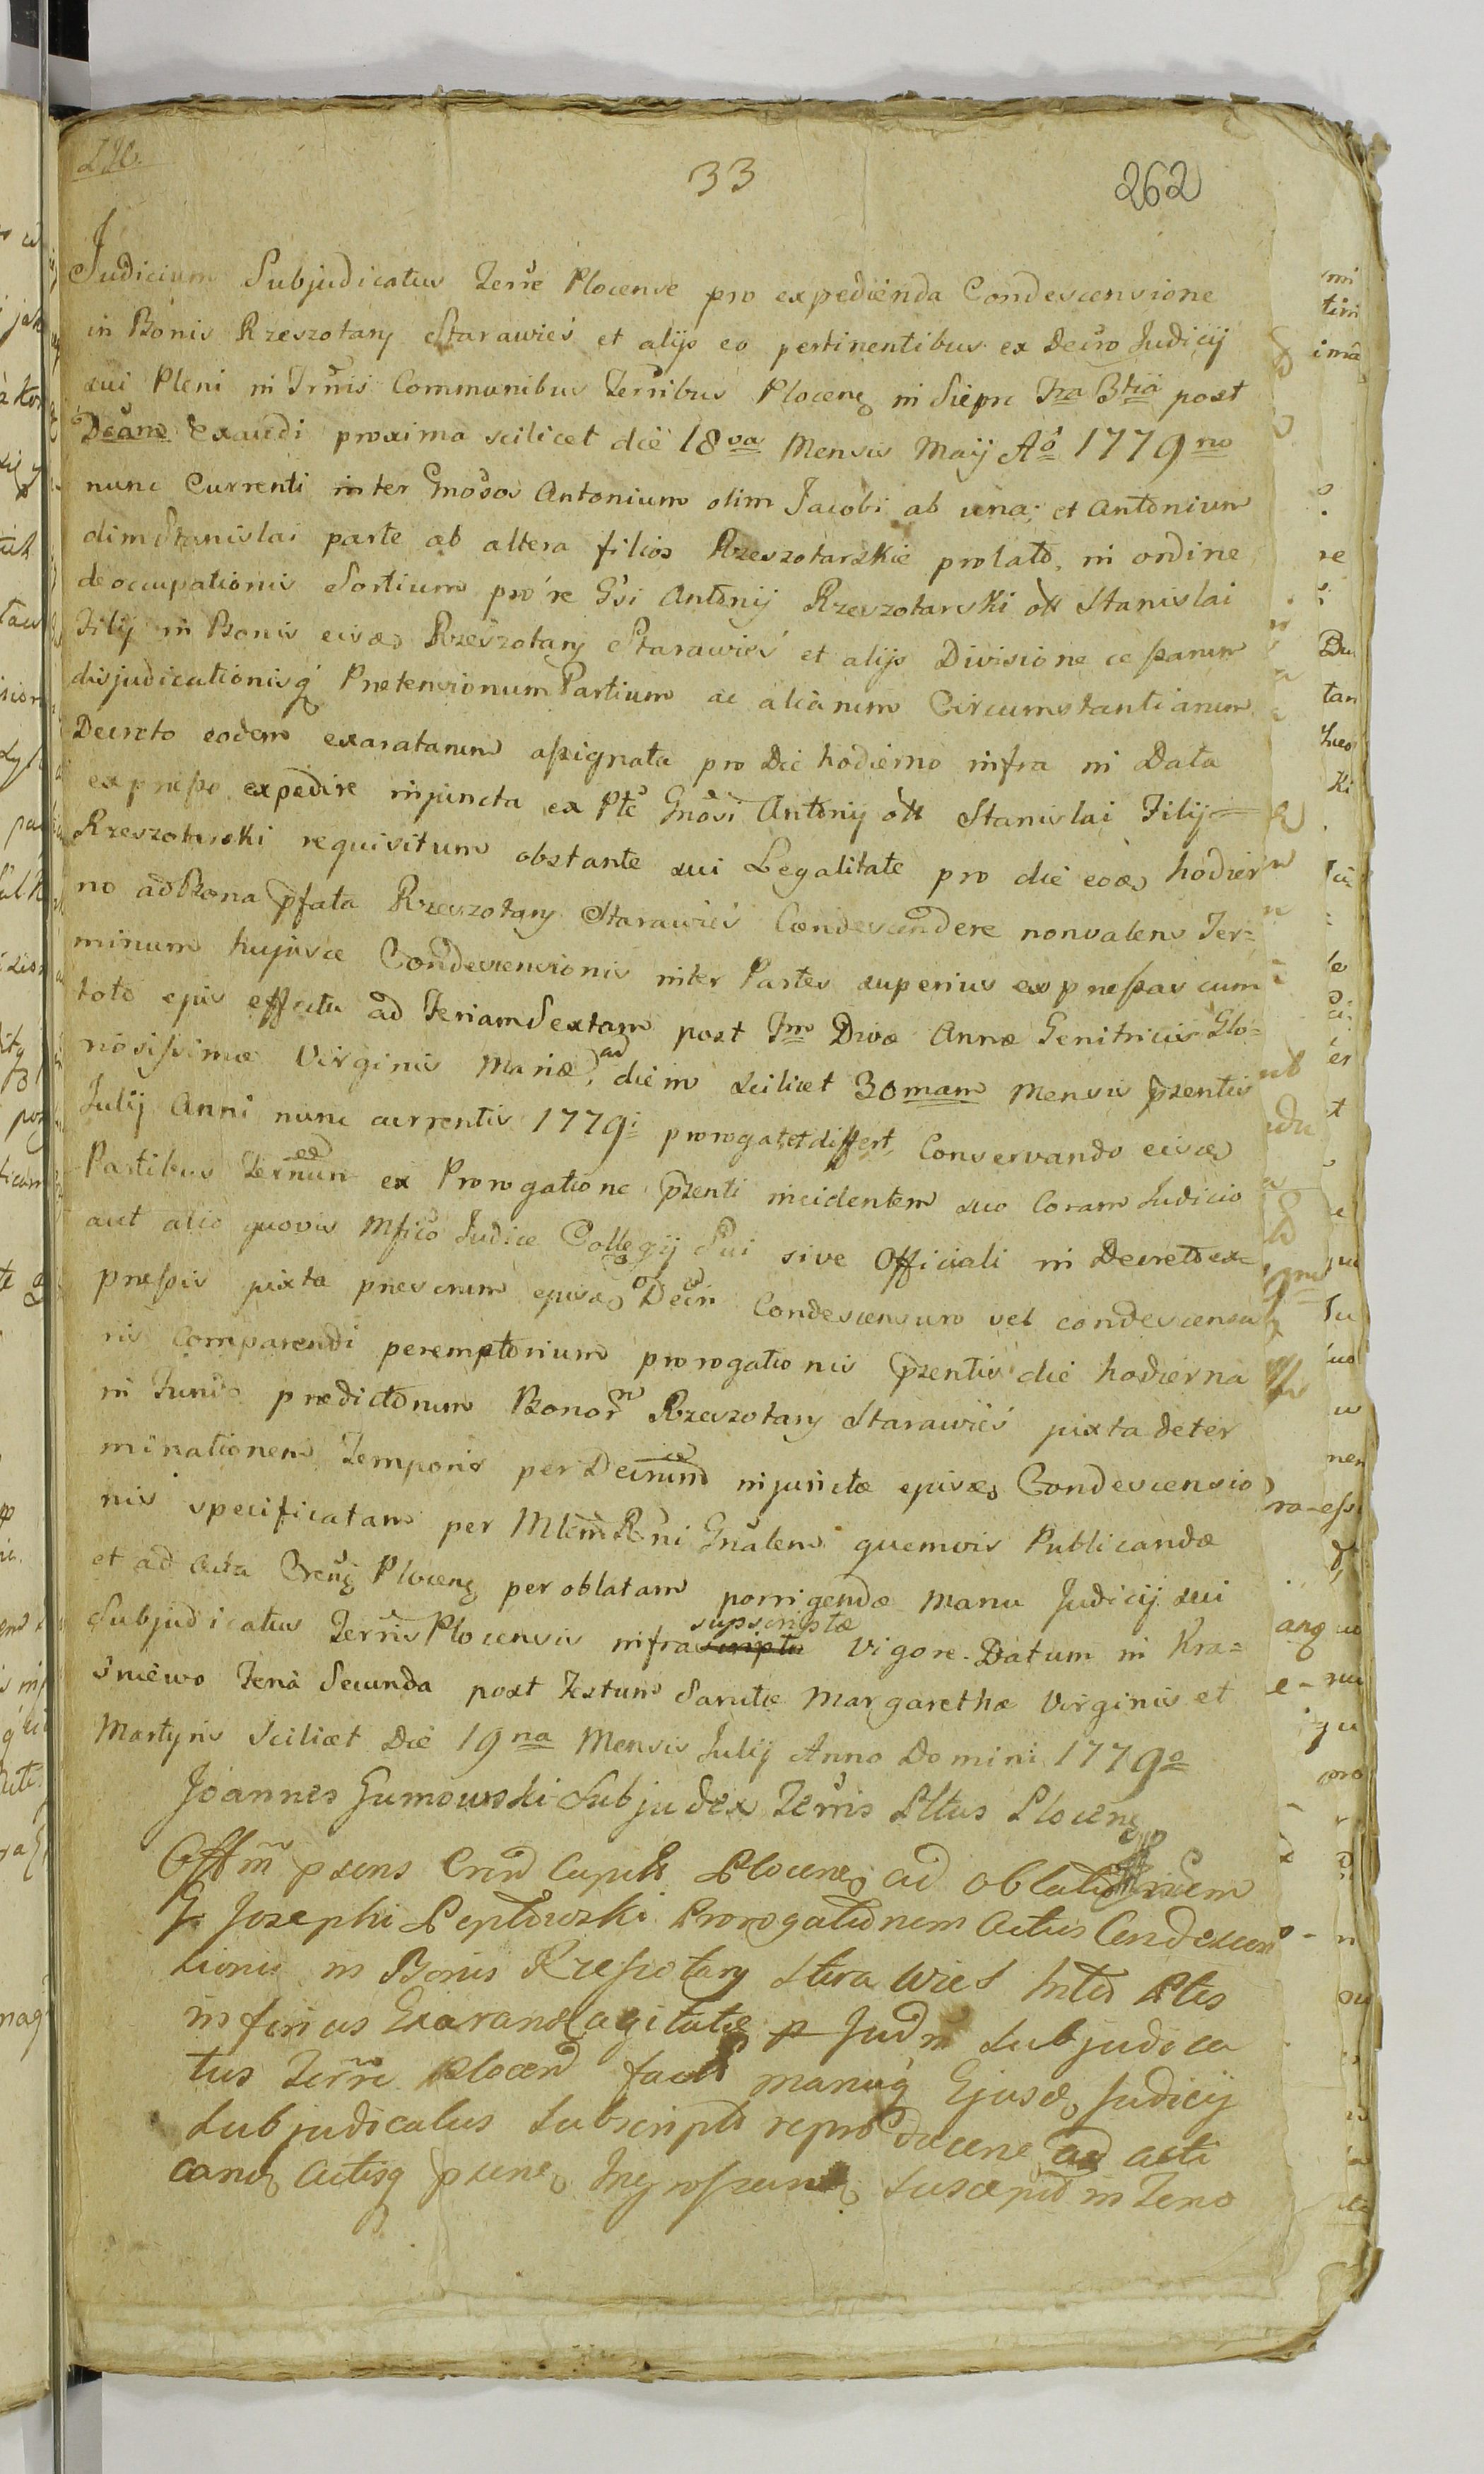 33
262
Judicium Subjudicatus Terre Plocense pro expedienda Condescensione
in Bonis Rzeszotary Starawieś et alijs eo pertinentibus ex Decro Judicij
sui Pleni in Trnis Communibus Terribus Plocens in Sieprc Fra 3tia post
Dcam Exaudi proxima scilicet die 18va Mensis Maij Ao 1779no
nunc Currenti inter Gnosos Antonium olim Jacobi ab una; et Antonium
olim Stanislai parte ab altera filios Rzeszotarskie prolato, in ordine
deoccupationis Sortium pro re Gsi Antonij Rzeszotarski olt Stanislai
Filij in Bonis eisd Rzeszotary Starawieś et alijs Divisione ce parum
disjudicationisq Pretensionum Partium ac aliarum Circumstantiarum
Decreto eodem exaratarum assignata pro Die hodierno infra in Data
expresso expedire injuncta ex Pte Gnosi Antonij olt Stanislai Filij
Rzeszotarski requisitum obstante sui Legalitate pro die eod hodier
no ad Bona pfata Rzeszotary Starawieś Condescendere nonvalens Ter=
minum hujusce Condescensionis inter Partes superius expressas cum
toto ejus effectu ad Feriam Sextam post Fm Divæ Annæ Genitricis Glo=
riosissimæ Virginis Mariæ, ad diem scilicet 30mam Mensis pzentis
Julij Anni nunc currentis 1779i prorogat et differt, Conservando eisd
Partibus Ternum eo ex Prorogatione pzenti incidentem suo Coram Judicio
aut alio quovis Mfico Judice Collegij Sui sive Officiali in Decreto ex=
pressis juxta prescrum ejusd Decri Condescensuro vel condescensu
ris Comparendi peremptorium prorogationis pzentis die hodierna
in Fundo prædictorum Bonor Rzeszotary Starawieś juxta deter
minationem Temporis per Decrum injunctæ ejusd Condescensio
nis specificatam per Mlem Rni Gnalem quemvis Publicandæ
et ad Acta Crens Plocens per oblatam porrigendæ Manu Judicij sui
Subjudicatus Terris Plocensis infra scripta supscriptæ Vigore. Datum in Kra=
śniewo Feria Secunda post Festum Sanctæ Margarethæ Virginis et
Martyris Scilicet Die 19na Mensis Julij Anno Domini 1779o
Joannes Gumowski Subjudex Terris Pltus Plocens
Offm pzens Crnd Capit Plocens ad oblationem
G Josephi Peptowski Prorogationem Actus Condescen
sionis in Bonis Rzeszotary Stara Wieś Inter Ptes
inferius Exarand agitatæ p Judm Subjudica
tus Terre Plocen fact manuq Ejusd Judicij
Subjudicatus Subscripta reproducene ad acti
cand Actisq pzens Ingrossand Suscepit in Teno